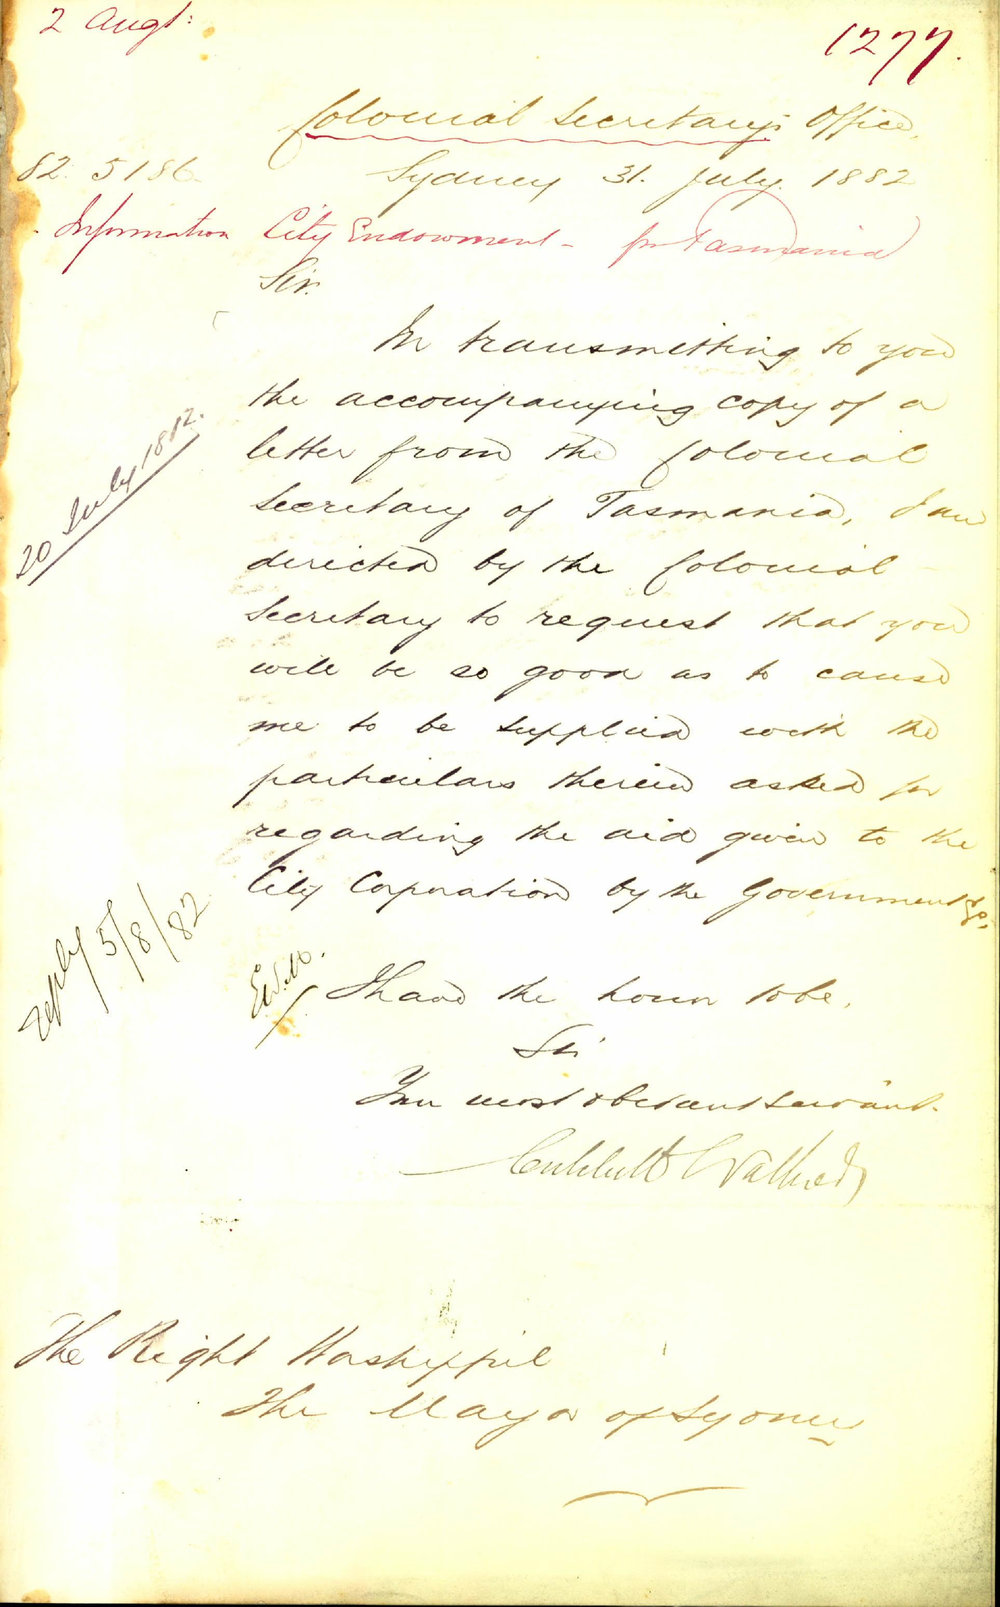 2 Augt:
1277.
Colonial Secretary's Office,
82. 5186
Sydney 31. July. 1882
Information City Endowment - for Tasmania
Sir.
In transmitting to you
the accompanying copy of a
letter from the Colonial
Secretary of Tasmania, I am
20 July 1882.
directed by the Colonial
Secretary to request that you
will be so good as to cause
me to be supplied with the
particulars therein asked for
regarding the aid given to the
City Corporation by the Government &c,
reply 5/8/82
I have the honor to be,
Sir
Your most obedient Servant.
The Right Worshipful
The Mayor of Sydney